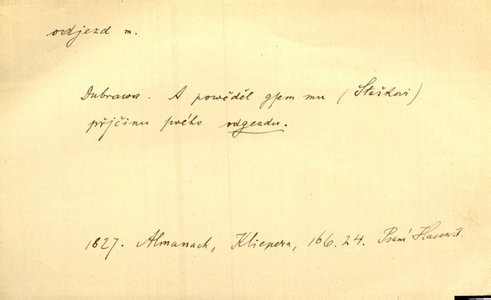 odjezd m.
Dubrawa. A powěděl gsem mu (Staškowi)
přjčinu prvého odgezdu.
1827. Almanach, Klicpera, 166.24. Psaní Husovo